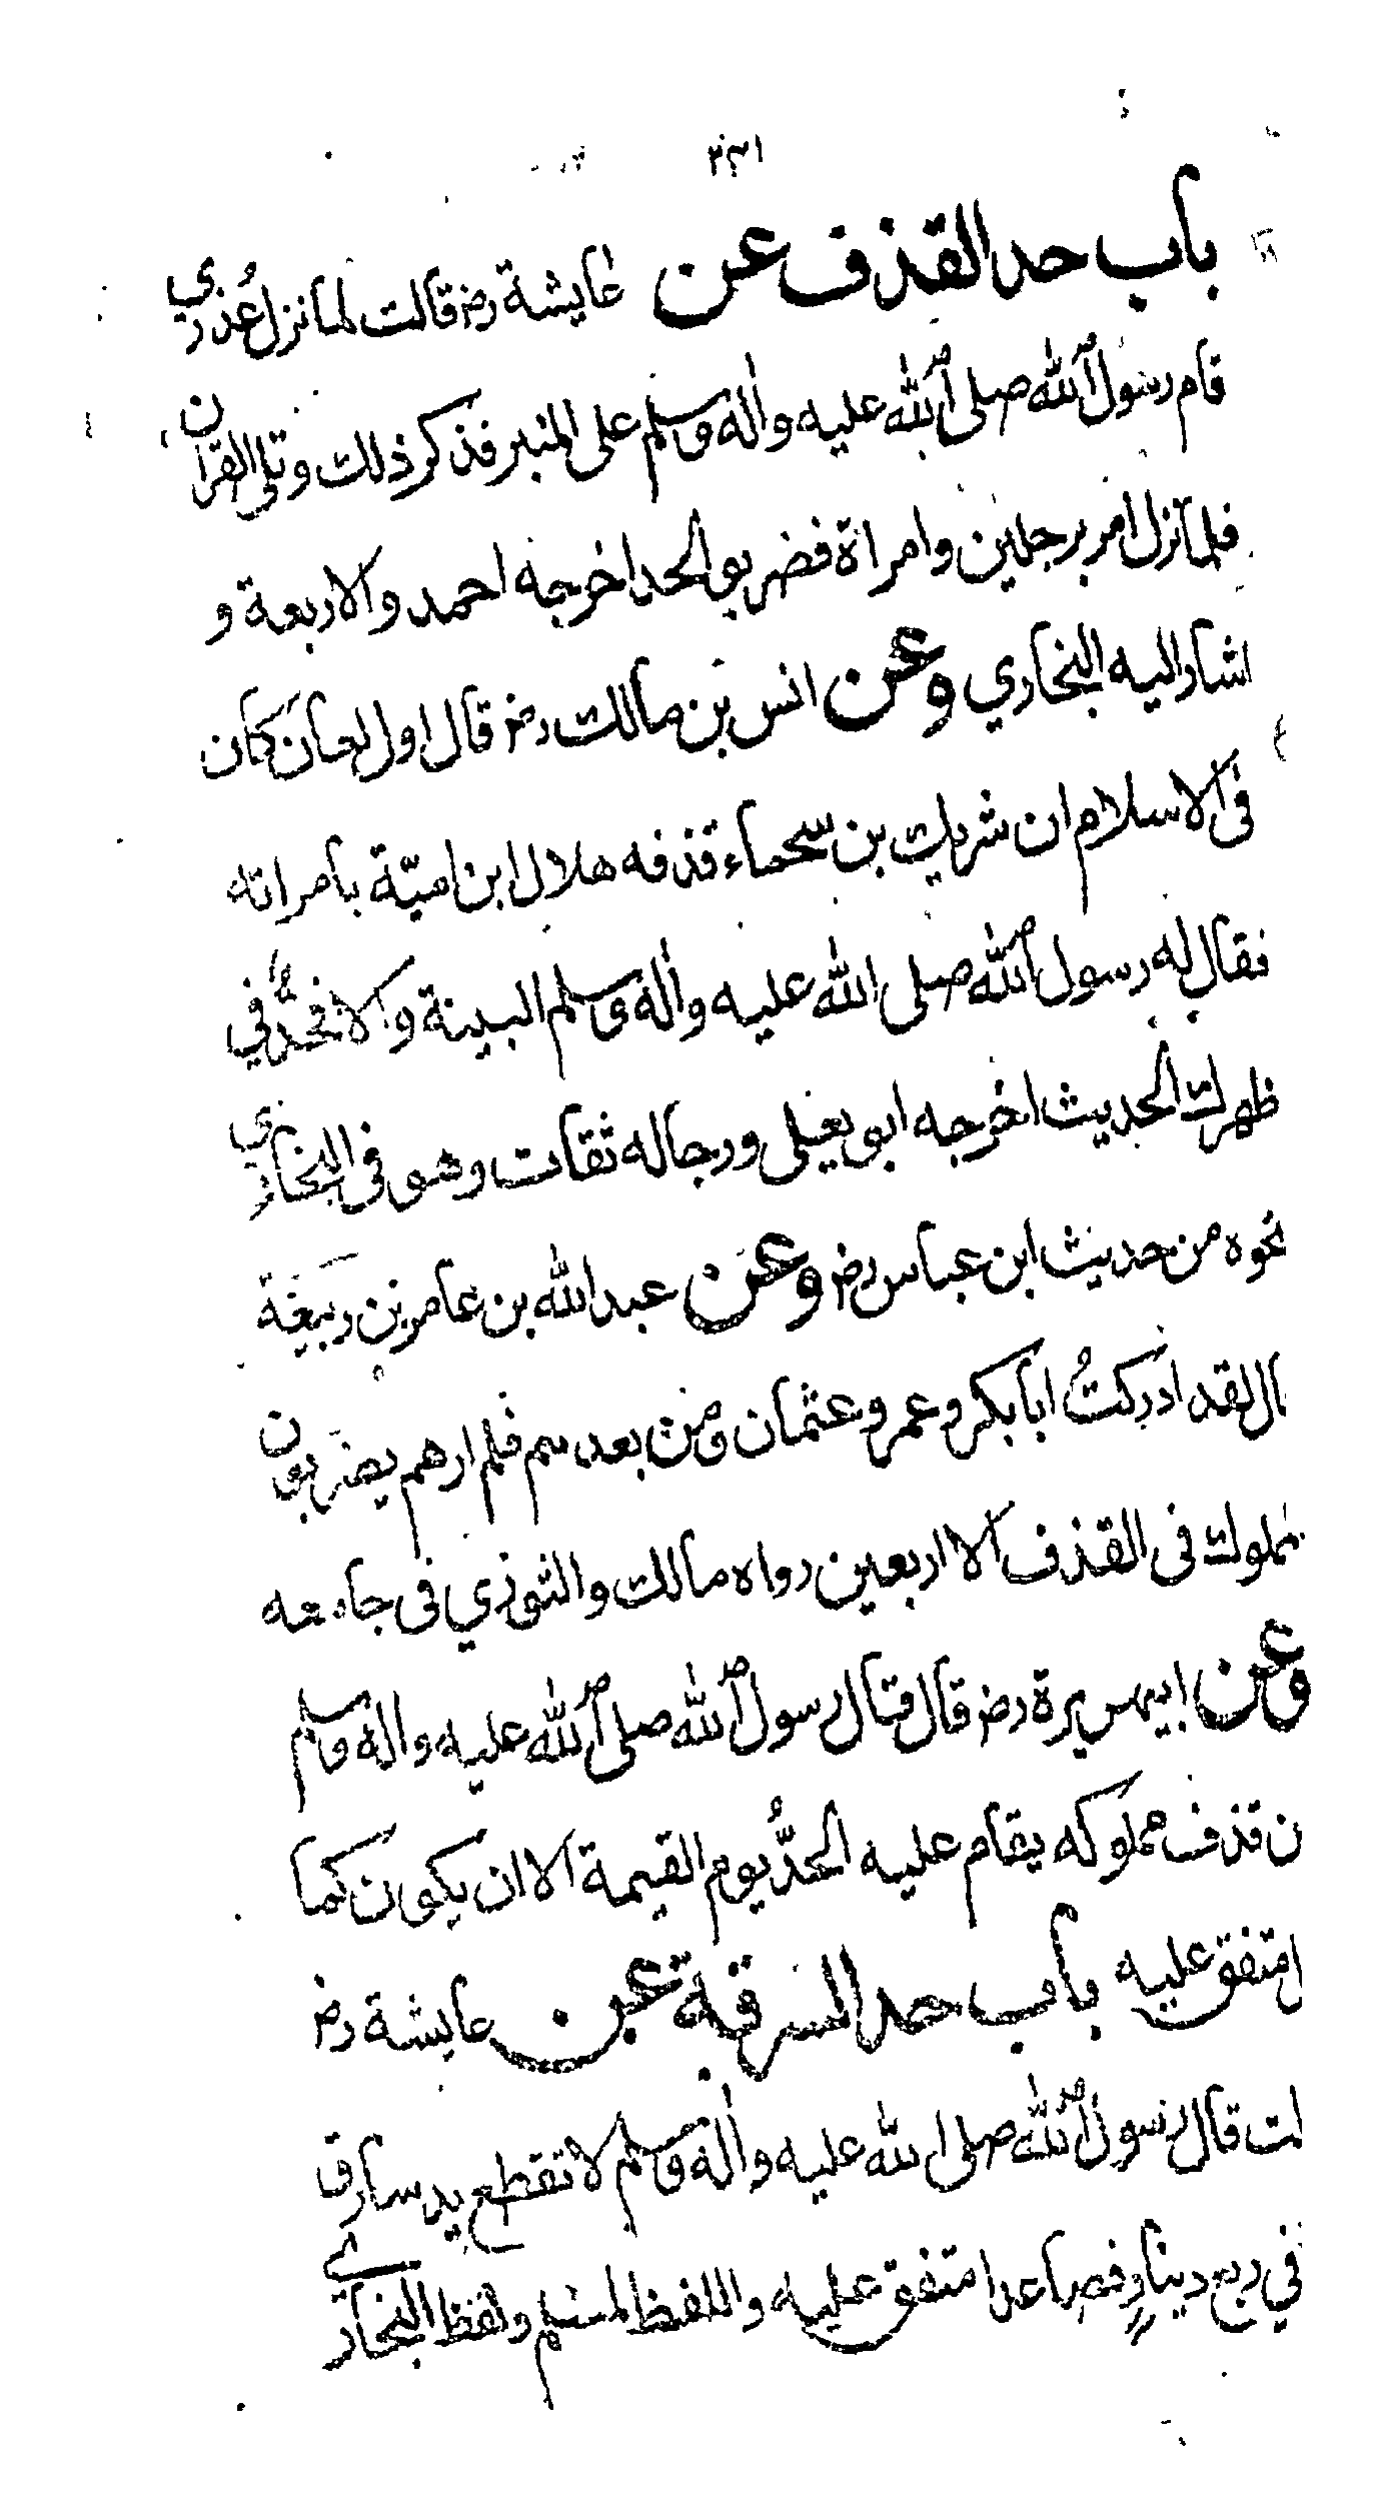 باب حد القذف عن عايشة رض قالت لما نزل عُذري
قام رسول الله صلى الله عليه واله وسلم على المنبر فذكر ذلك وتلى القران
فلما نزل امر برجلين وامراة فضربو الحد اخرجه احمد والاربعة و
اشار اليه البخاري وعن انس بن مالك رض قال اول لعان كان
فى الاسلام ان شريك بن سحماء قذفه هلال ابن اميّة بامراته
فقال له رسول الله صلى الله عليه واله وسلم البينة والا فحدٌّ في
ظهرك الحديث اخرجه ابو يعلى ورجاله ثقات وهو فى البخاري
نحوه من حديث ابن عباس رض وعن عبد الله بن عامر بن ربيعَة
ال لقد ادركتُ ابا بكر وعمر وعثمان ومن بعدهم فلم ارهم يضربون
مملوك فى القذف الا اربعين رواه مالك والثوري فى جامعه
وعن ابي هريرة رض قال قال رسول الله صلى الله عليه واله وسلم
ن قذف مملوكه يقام عليه الحدُّ يوم القيمة الا ان يكون كما
ل متفق عليه باب حد السرقة عن عايشة رض
لت قال رسول الله صلى الله عليه واله وسلم لا تقطع يد سارق
في ربع دينارٍ فصاعدا متفق عليه واللفظ لمسلم ولفظ البخاري